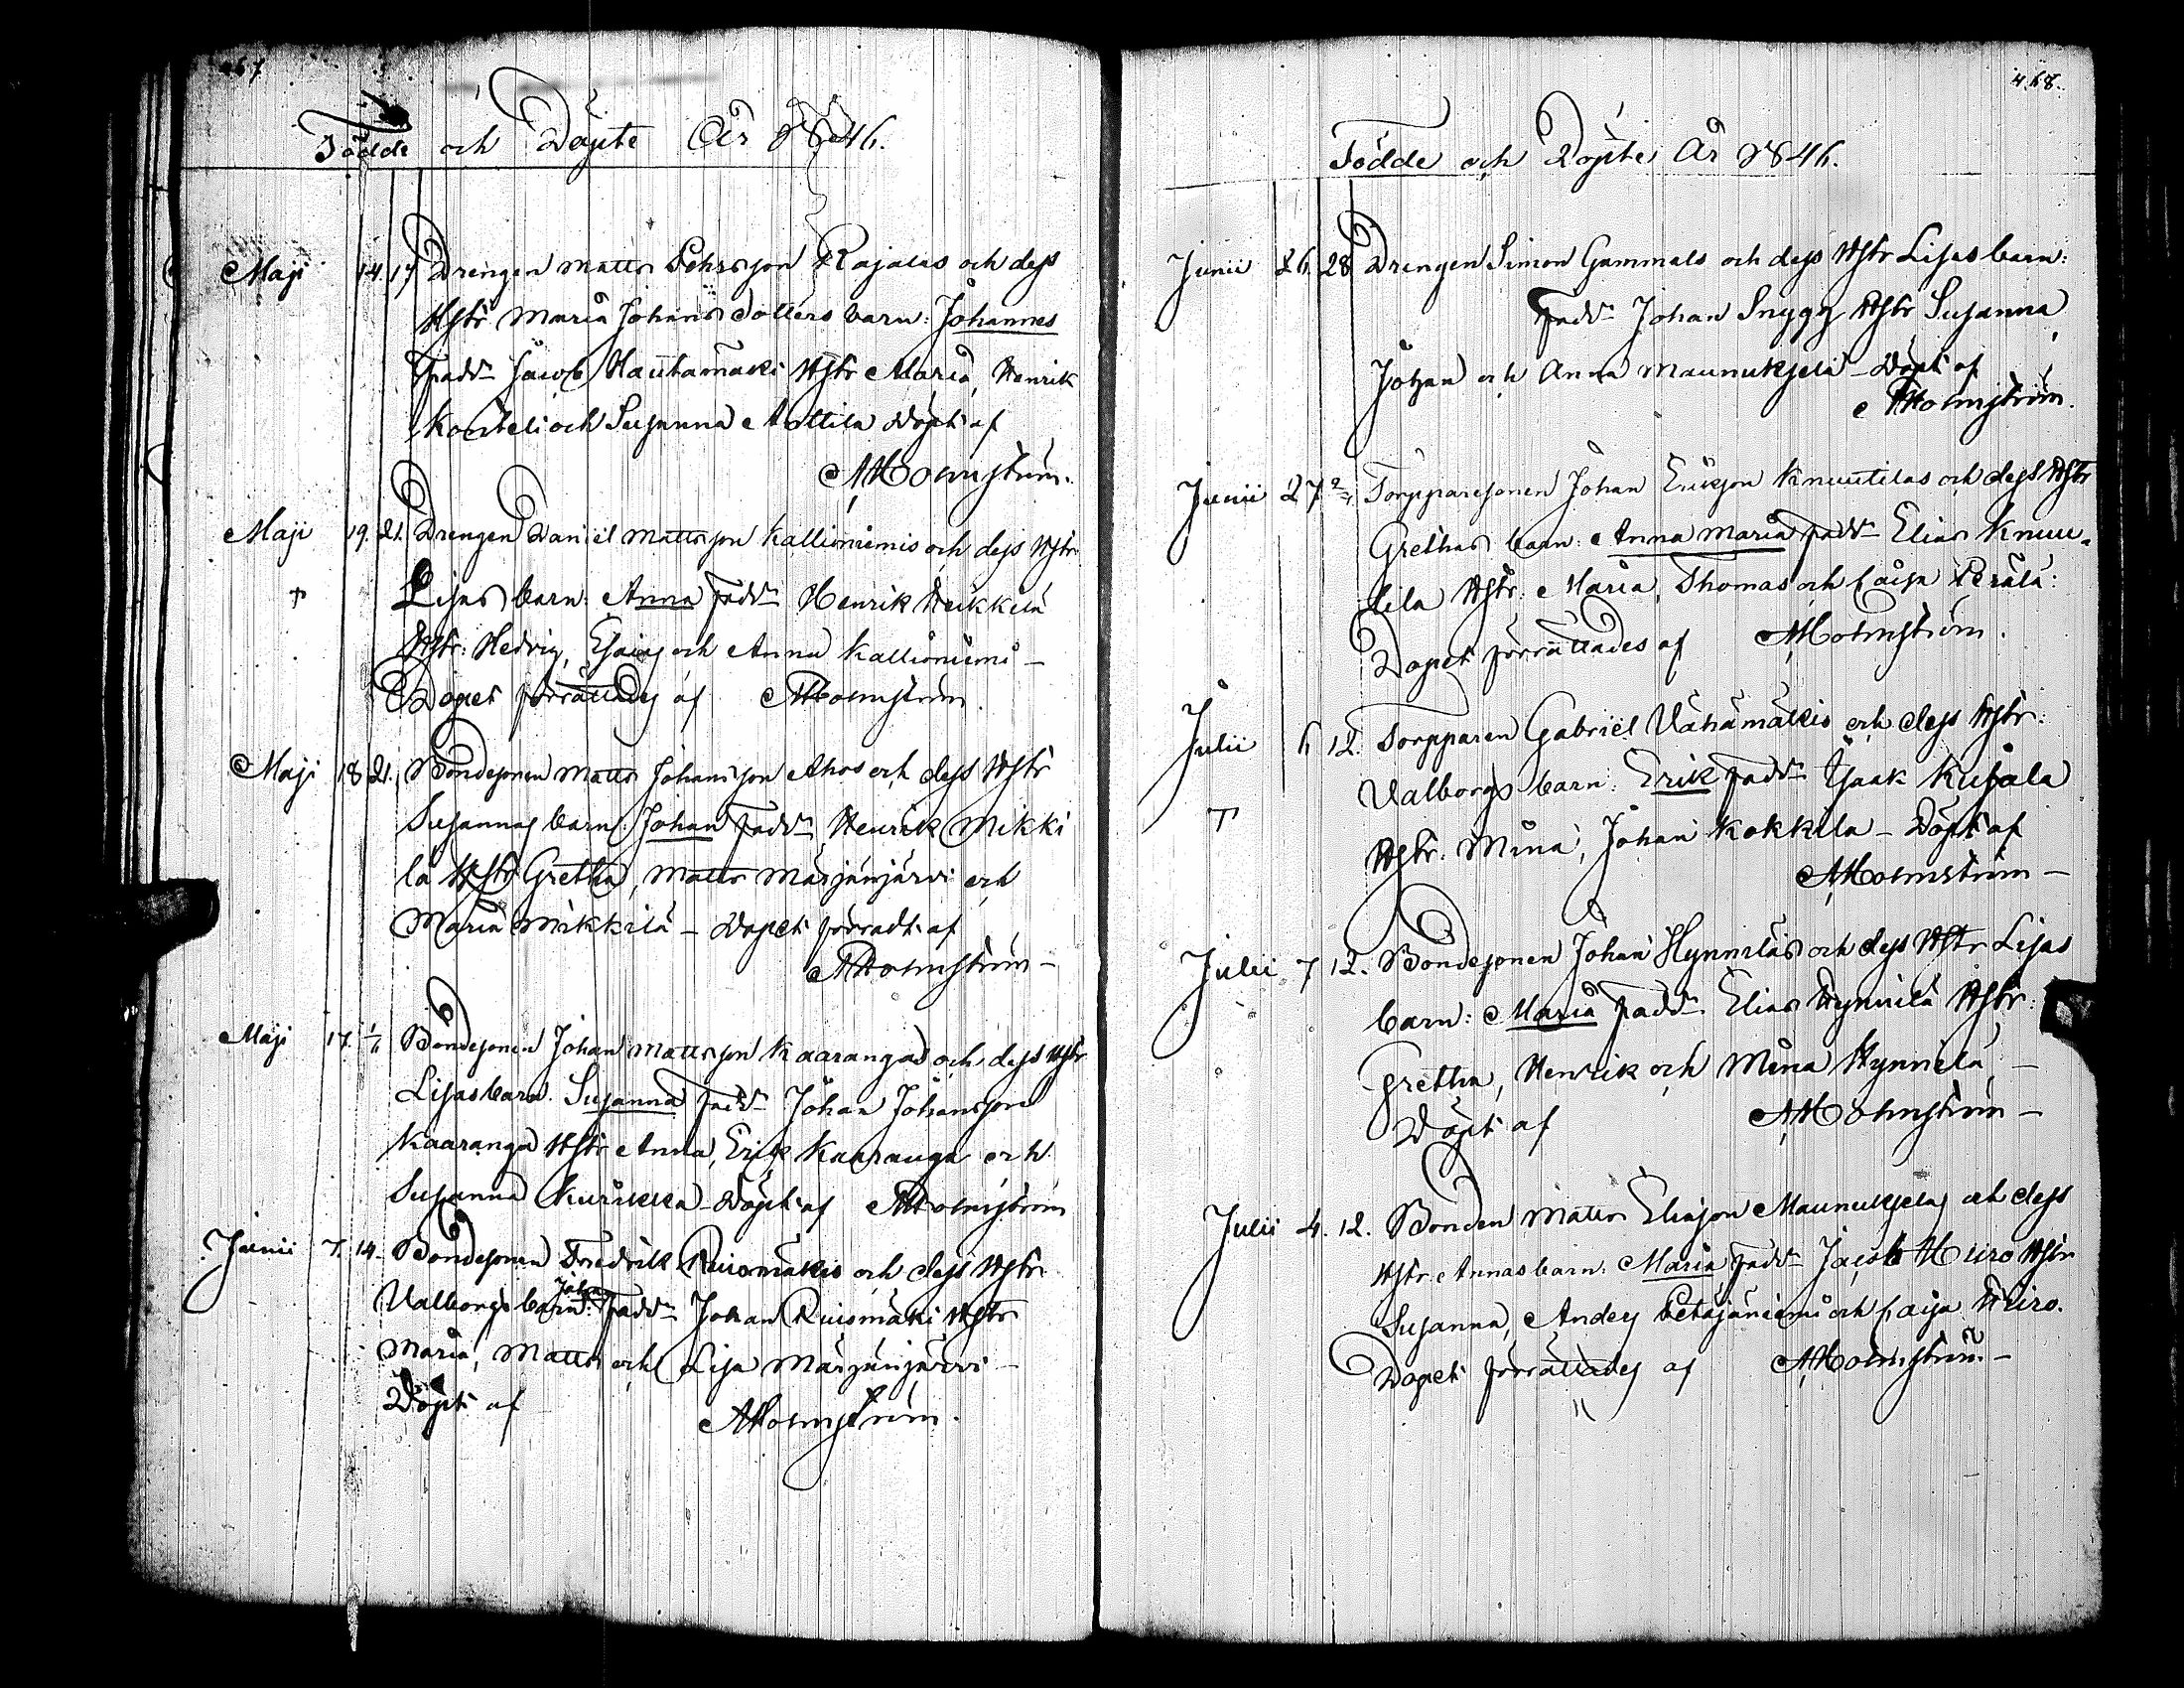 467
Födde och Döpte År 1846.
Maji 14. 17 Drengen Matts Pehrsson Rajalas och dess
Hstr Maria Johans dotters barn: Johannes
Fadd: Jacob Hautamäki Hstr Maria, Henrik
och Susanna Anttila Döpt af
AHolmström.
Maji 19. 21. Drengen Daniel Mattsson Kallioniemis och dess Hstr
† Lisas barn: Anna Fadd: Henrik Heikkilä
Hstr: Hedvig, Esaias och Anna Kallioniemi –
Dopet förrättades af AHolmström.
Maji 18 21. Bondesonen Matts Johansson Ahos och dess Hstr
Susannas barn: Johan Fadd: Henrik Mikki
lä Hstr Gretha, Matts Marjanjärvi och
Maria Mikkilä – Dopet förrädt. af
AHolmström –
Maji 17. Bondesonen Johan Mattsson Kaarangas och dess Hstr
Lisas barn. Susanna Fadd: Johan Johansson
Kaaranga Hstr Anna, Erik Kaaranga och
Susanna Kurikka – Döpt af AHolmström
Junii 7. 14. Bondesonen Fredrik Ruismäkis och dess Hstr
Valborgs barn: Johan Fadd: Johan Ruismäki Hstr
Maria, Matts och Lisa Marjanjärvi –
Döpt af AHolmström.
468.
Födde och Döpte År 1846.
Junii 26. 28 Drengen Simon Gammals och dess Hstr Lisas barn:
Fadd: Johan Snygg Hstr Susanna
Johan och Anna Maunuksela – Döpt af
AHolmström.
Junii 27 Torpparesonen Johan Eriksson Knuutilas och dess Hstr
Grethas barn: Anna Maria Fadd: Elias Knuu-
tila Hstr: Maria, Thomas och Caisa Perälä:
Dopet förrättades af AHolmström.
Julii 6 12. Torpparen Gabriel Vähämäkis och dess Hstr:
Valborgs barn: Erik Fadd: Isaak Kujala
† Hstr: Mina, Johan Kokkila – Döpt af
AHolmström –
Julii 7 12. Bondesonen Johan Hynniläs och dess Hstr Lisas
barn: Maria Fadd: Elias Hynnilä Hstr:
Gretha, Henrik och Mina Hynnilä, –
Döpt af AHolmström –
Julii 4. 12. Bonden Matts Eliasson Maunukselas och dess
Hstr: Annas barn: Maria Fadd: Jacob Hiiro Hstr
Susanna, Anders Petäjäniemi och Caisa Hiiro.
Dopet förrättades af AHolmström. –